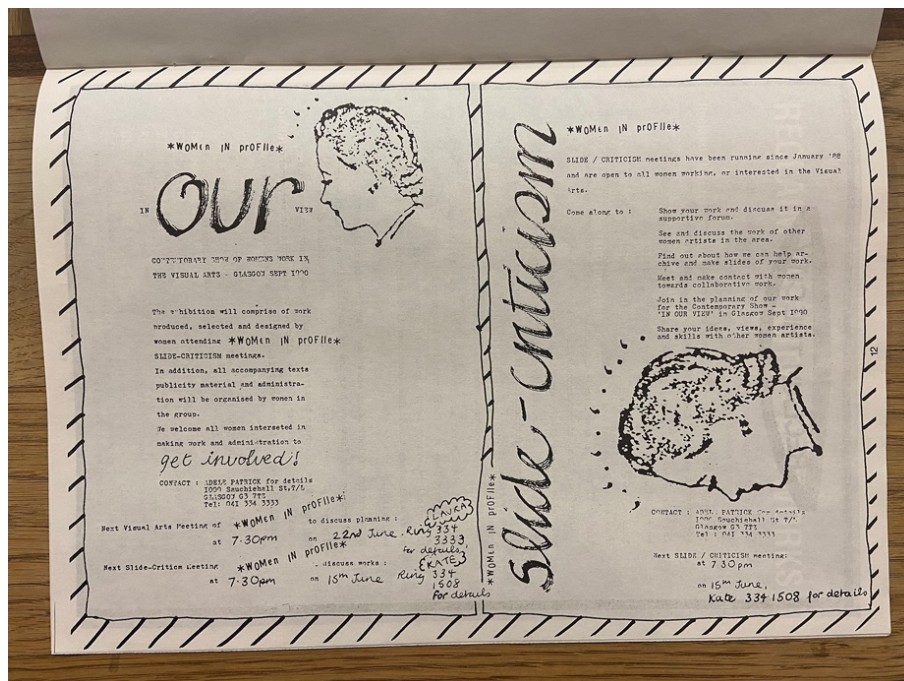 *WOMEN IN PROFILE*
IN OUR VIEW
CONTEMPORARY SHOW OF WOMENS WORK IN
THE VISUAL ARTS - GLASGOW SEPT 1990
The exhibition will comprise of work
produced, selected and designed by
women attending *WOMEN IN PROFILE*
SLIDE-CRITICISM meetings.
In addition, all accompanying texts
publicity material and administra-
tion will be organised by women in
the group.
We welcome all women interseted in
making work and administration to
get involved!
CONTACT : ADELE PATRICK for details
Sauchiehall St, T/L
GLASGOW G3 7TZ
Tel: 041 334 3333
Next Visual Arts Meeting of *WOMEN IN PROFILE* to discuss planning :
at 7.30pm on 22nd June. Ring LAURA 334
3333
for details,
Next Slide-Critism Meeting *WOMEN IN PROFILE* discuss works :
at 7.30pm on 15th June Ring KATE 334
1508
For details
Slide-Criticism
*WOMEN IN PROFILE*
*WOMEN IN PROFILE*
SLIDE / CRITICISM meetings have been running since January '88
and are open to all women working, or interested in the Visual
Arts.
Come along to : Show your work and discuss it in a
supportive forum.
See and discuss the work of other
women artists in the area.
Find out about how we can help ar-
chive and make slides of your work.
Meet and make contact with women
towards collaborative work.
Join in the planning of our work
for the Contemporary Show -
'IN OUR VIEW' in Glasgow Sept 1990
Share your ideas, views, experience
and skills with other women artists.
12
CONTACT : ADELE PATRICK for details
Sauchiehall St T/L
Glasgow G3 7TZ
Tel : 041 334 3333
Next SLIDE / CRITICISM meeting:
at 7.30pm
on 15th June,
Kate 334 1508 for details